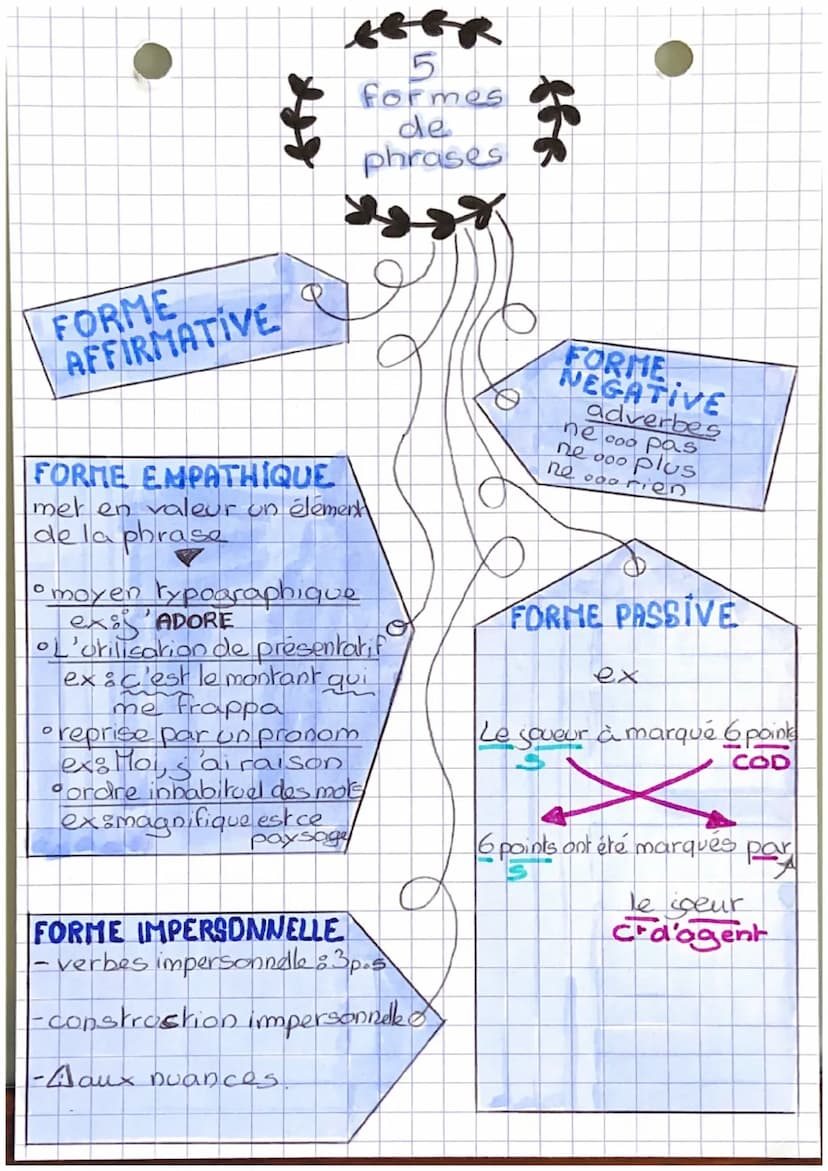 5
formes
de
phrases
FORME
AFFIRMATIVE
FORME
NEGATIVE
adverbes
ne ... pas
ne ... plus
ne ... rien
FORME EMPATHIQUE
met en valeur un élément
de la phrase
• moyen typographique
ex: j'ADORE
• L'utilisation de présentatif
ex : c'est le montant qui
me frappa
• reprise par un pronom
ex: Moi, j'ai raison
• ordre inhabituel des mots
ex: magnifique est ce
paysage
FORME PASSIVE
ex
Le joueur à marqué 6 points
S COD
6 points ont été marqués par
S
le joeur
Ct d'agent
FORME IMPERSONNELLE
- verbes impersonnelle : 3p.s
- construction impersonnelle
- ⚠ aux nuances.